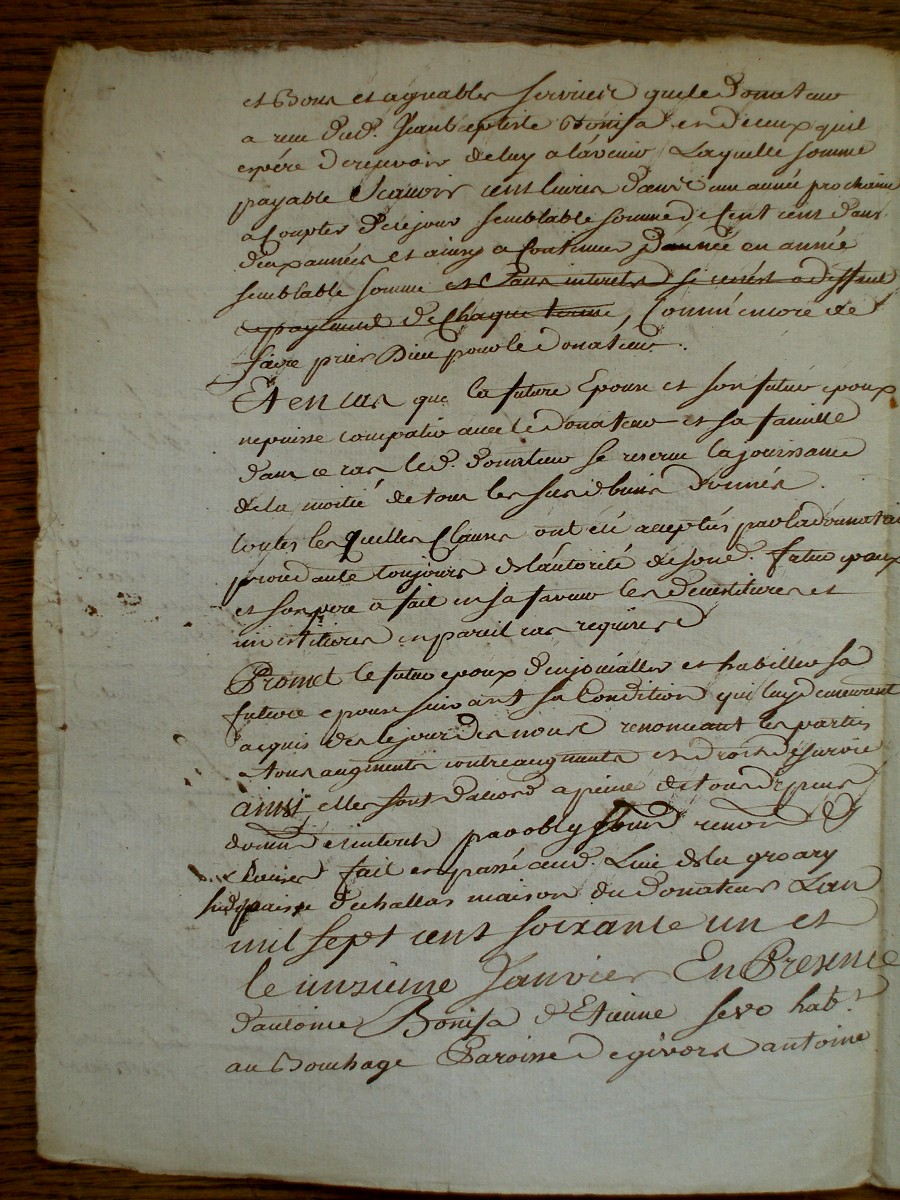 et Bons et agreables services que le Donateur
a reçu dud. Jean baptiste Bonifa et de ceux qu'il
espére de recevoir de luy a lavenir Laquelle somme
payable Scavoir cent livres dans une année prochaine
a Compter de ce jour semblable somme de Cent dans
deux années et ainsy a Continuer dannée en année
semblable somme et Sans interets si ce n'est a deffaut
payement de Chaque terme, Comm' encore de
faire prier Dieu pour le Donateur.
Et en cas que la future Epouse et son futur epoux
ne puisse compatir avec le Donateur et sa famille
dans ce cas led. donateur se reserve la jouissance
de la moitié de tous les susd. biens donnés.
toutes lesquelles Clauses ont été acceptés par la donatai
procedante toujours de l'autorité de son d. futur epoux
et son pere a fait en sa faveur les devestitures et
investitures en pareil cas requises
Promet le futur epoux d'enjoialler et habiller sa
future epouse suivant sa Condition qui luy demeurent
acquis des le jour des noces renoncant les parties
a tous augments contreaugments et droits de survie
ainsi elles sont d'acord a peine de tous depens
domm. et interets par obl. sbm. renon. &
Clauses fait et passé aud. Lieu de la
susd. paroisse dechallas maison du Donateur Lan
mil sept cent soixante un et
le unzieme Janvier En Presence
d'antoine Bonifa d'Etienne habt.
au Bouchage Paroisse de givors antoine